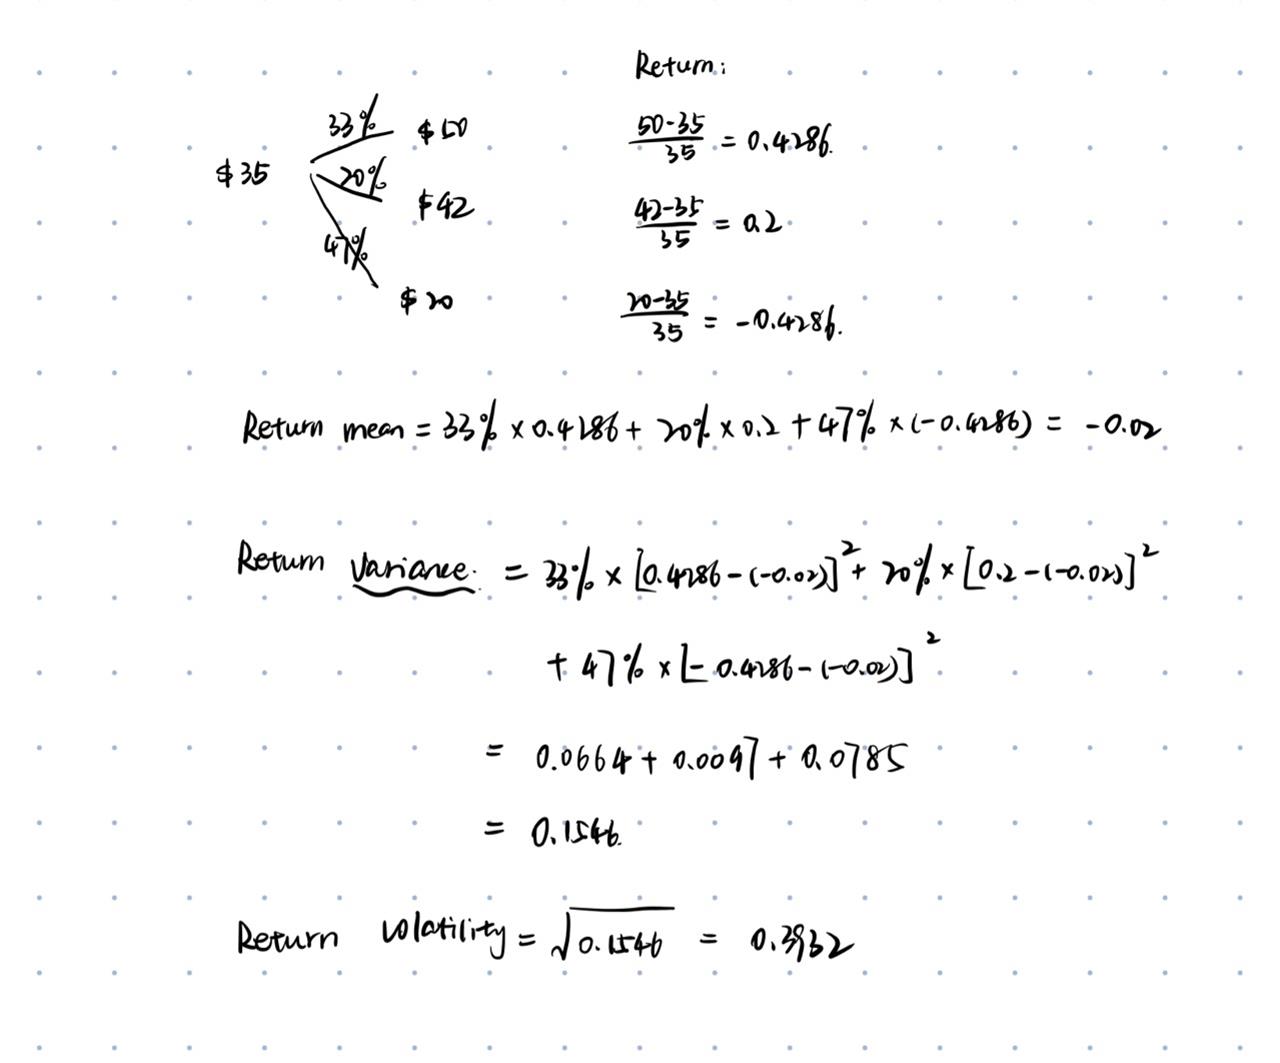 Return:
33% $50
$35 20% $42
47% $20
50-35/35 = 0.4286.
42-35/35 = 0.2
20-35/35 = -0.4286.
Return mean = 33% × 0.4286 + 20% × 0.2 + 47% × (-0.4286) = -0.02
Return variance. = 33% × [0.4286-(-0.02)]² + 20% × [0.2-(-0.02)]²
+ 47% × [-0.4286-(-0.02)]²
= 0.0664 + 0.0097 + 0.0785
= 0.1546.
Return volatility = √0.1546 = 0.3932